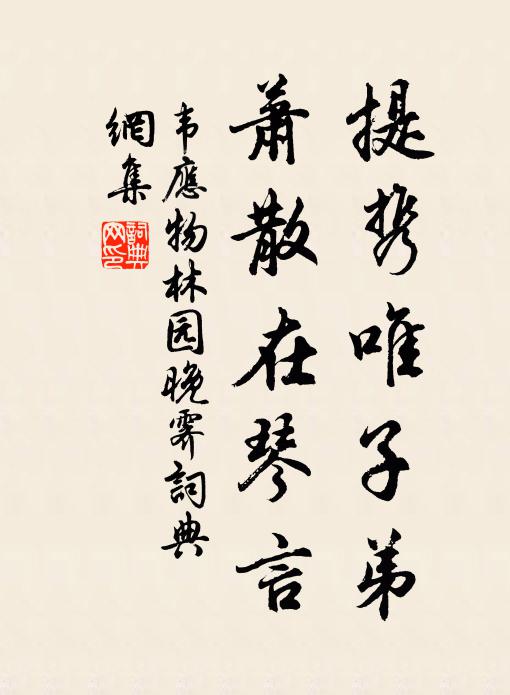 提携唯子弟
萧散在琴言
韦應物林园晚霁詞典
網集
詞典
网印